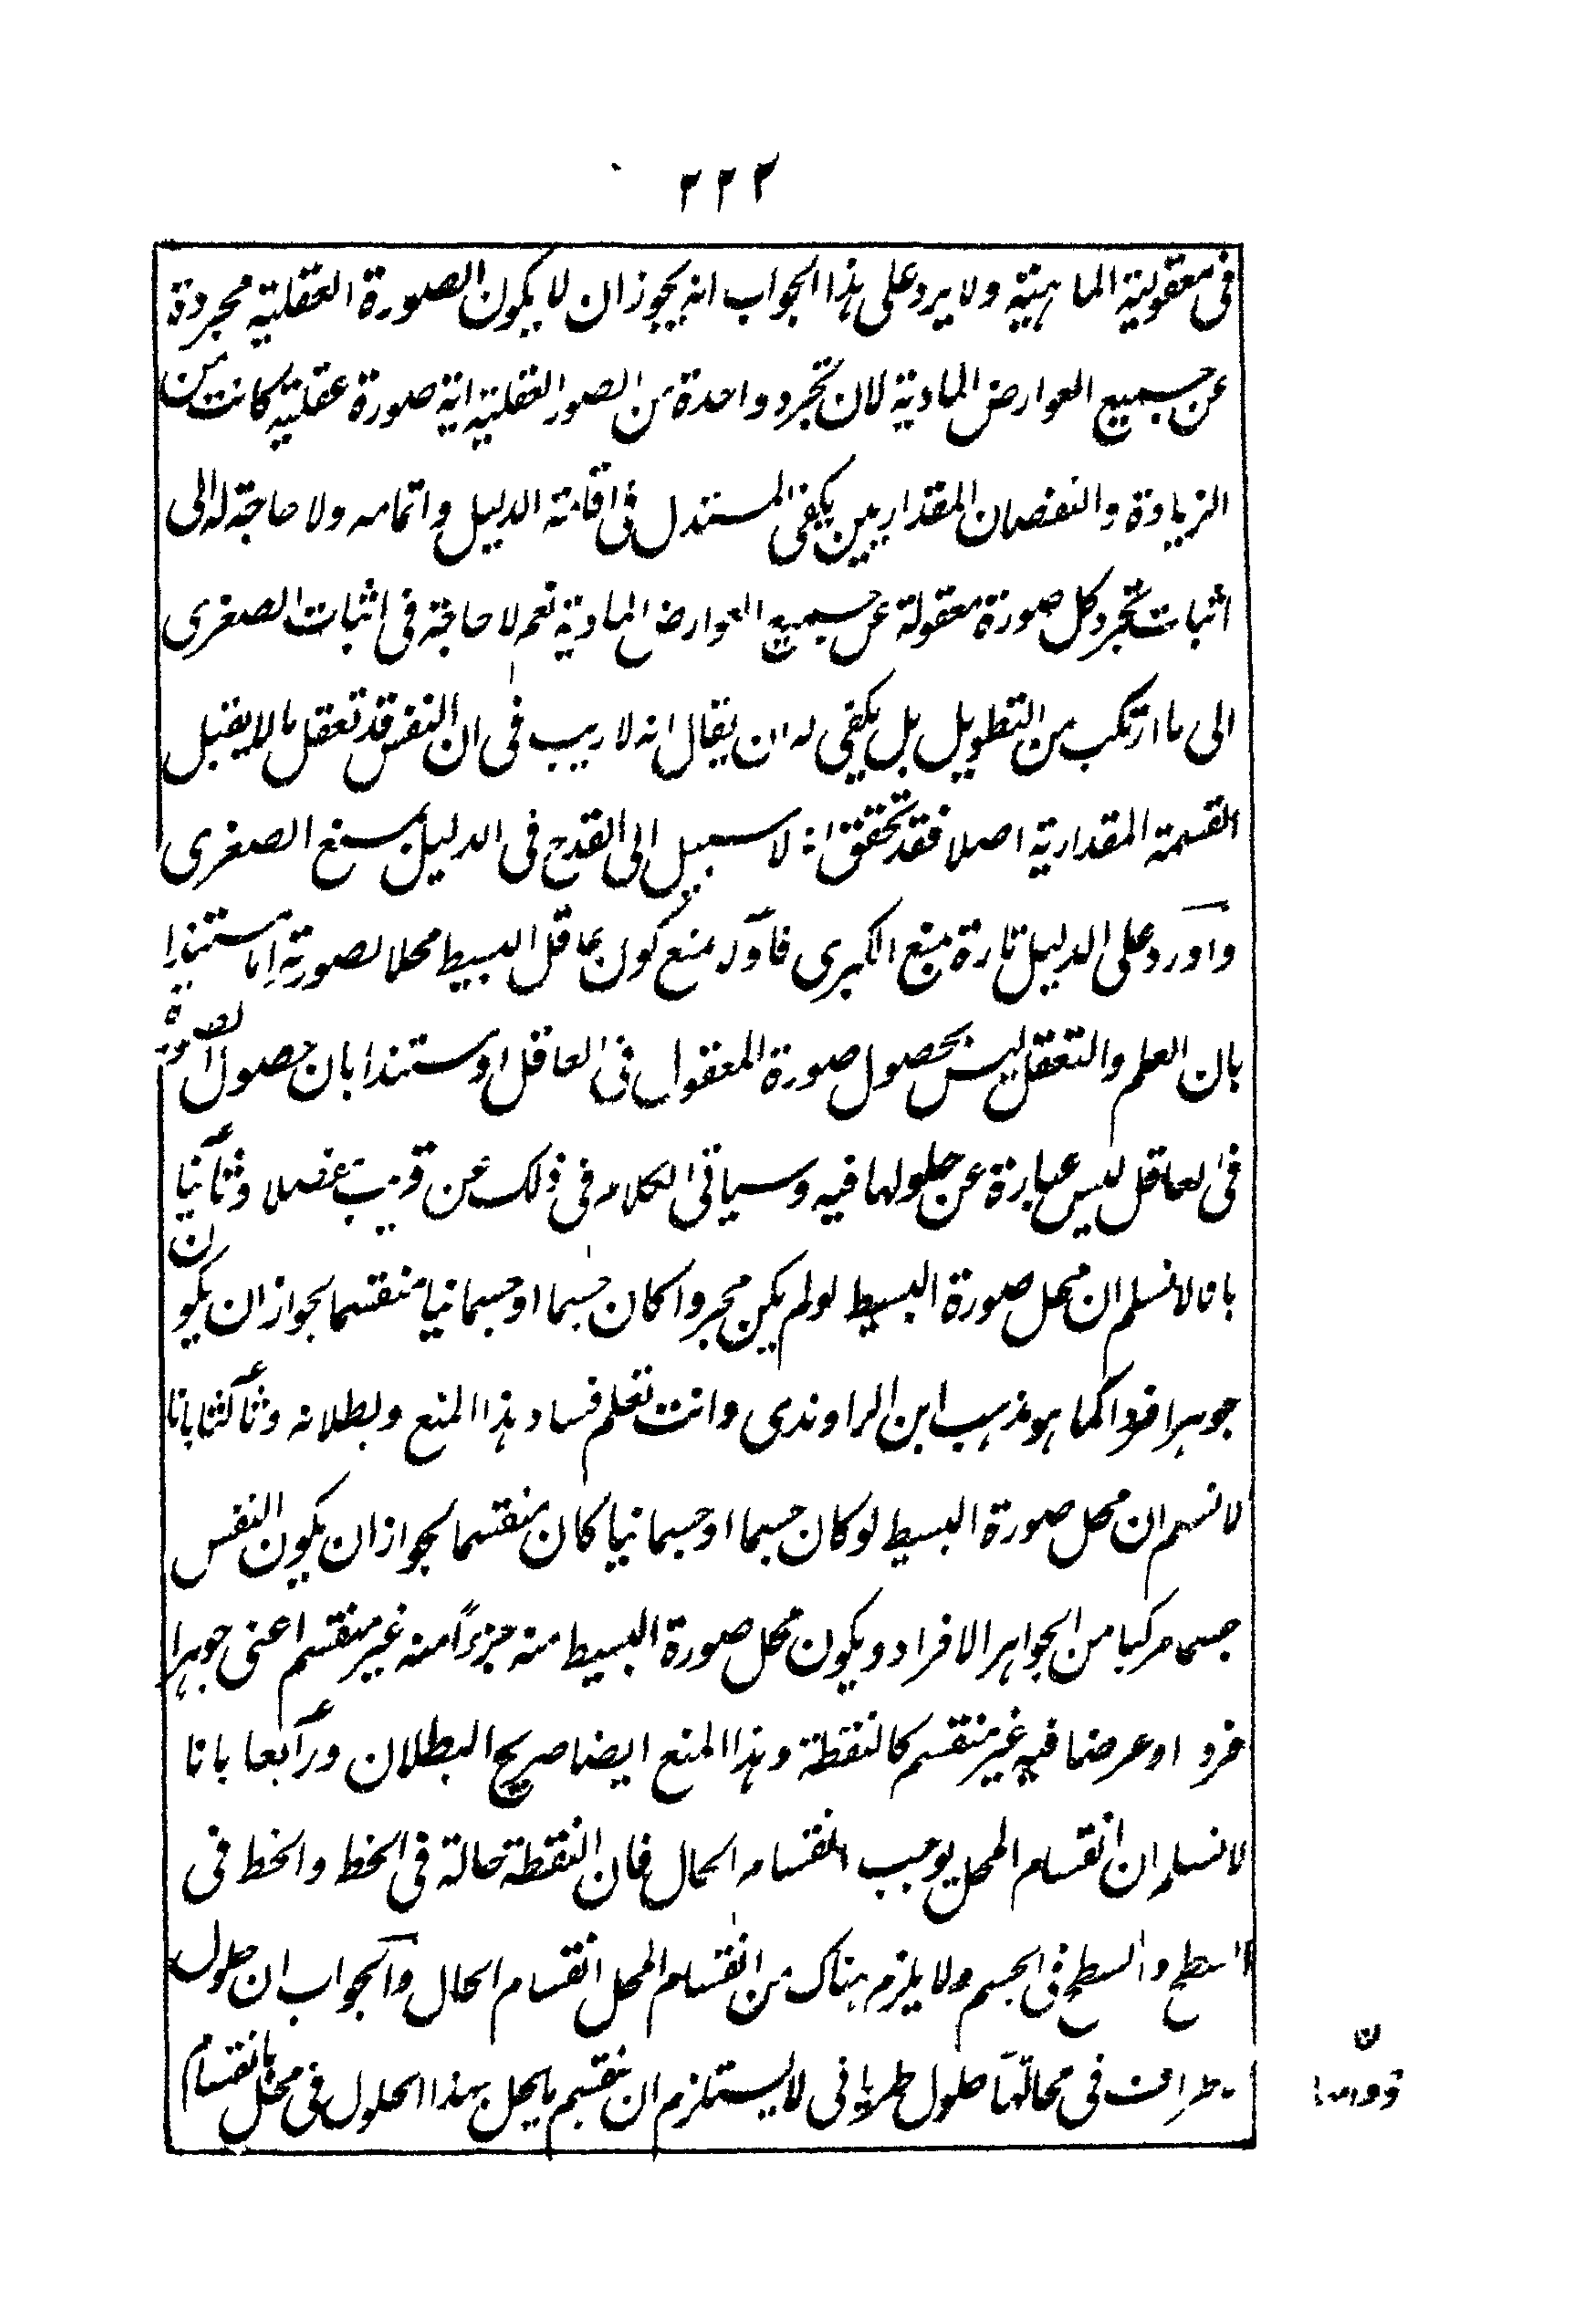 ٢٢٢
فى معقولية الماهية ولا يرد على هذا الجواب انه يجوز ان لا يكون الصورة العقلية مجردة
عن جميع العوارض المادية لان تجرد واحدة من الصور العقلية اية صورة عقلية كانت من
الزيادة والنقصان المقداريين يكفى المستدل فى اقامة الدليل واتمامه ولا حاجة له الى
اثبات تجرد كل صورة معقولة عن جميع العوارض المادية نعم لا حاجة فى اثبات الصغرى
الى ما ارتكب من التطويل بل يكفى له ان يقال انه لا ريب فى ان النفس قد تعقل ما لا يقبل
القسمة المقدارية اصلا فقد تحقق انه لا سبيل الى القدح فى الدليل بمنع الصغرى
واورد على الدليل تارة بمنع الكبرى فاولا بمنع كون عاقل البسيط محلا لصورته اما مستندا
بان العلم والتعقل ليس بحصول صورة المعقول فى العاقل او مستندا بان حصول الصورة
فى العاقل ليس عبارة عن حلولها فيه وسياتى الكلام فى ذلك عن قريب مفصلا وثانيا
بانا لا نسلم ان محل صورة البسيط لو لم يكن مجردا كان جسما او جسمانيا منقسما لجواز ان يكون
جوهرا فردا كما هو مذهب ابن الراوندى وانت تعلم فساد هذا المنع وبطلانه وثالثا بانا
لا نسلم ان محل صورة البسيط لو كان جسما او جسمانيا كان منقسما لجواز ان يكون النفس
جسما مركبا من الجواهر الافراد ويكون محل صورة البسيط منه جزءاً منه غير منقسم اعنى جوهرا
فردا او عرضا فيه غير منقسم كالنقطة وهذا المنع ايضا صريح البطلان ورابعا بانا
لا نسلم ان انقسام المحل يوجب انقسام الحال فان النقطة حالة فى الخط والخط فى
السطح والسطح فى الجسم ولا يلزم هناك من انقسام المحل انقسام الحال والجواب ان حلول
الاطراف فى محالها حلول طريانى لا يستلزم ان ينقسم ما يحل بهذا الحلول فى محل بانقسام